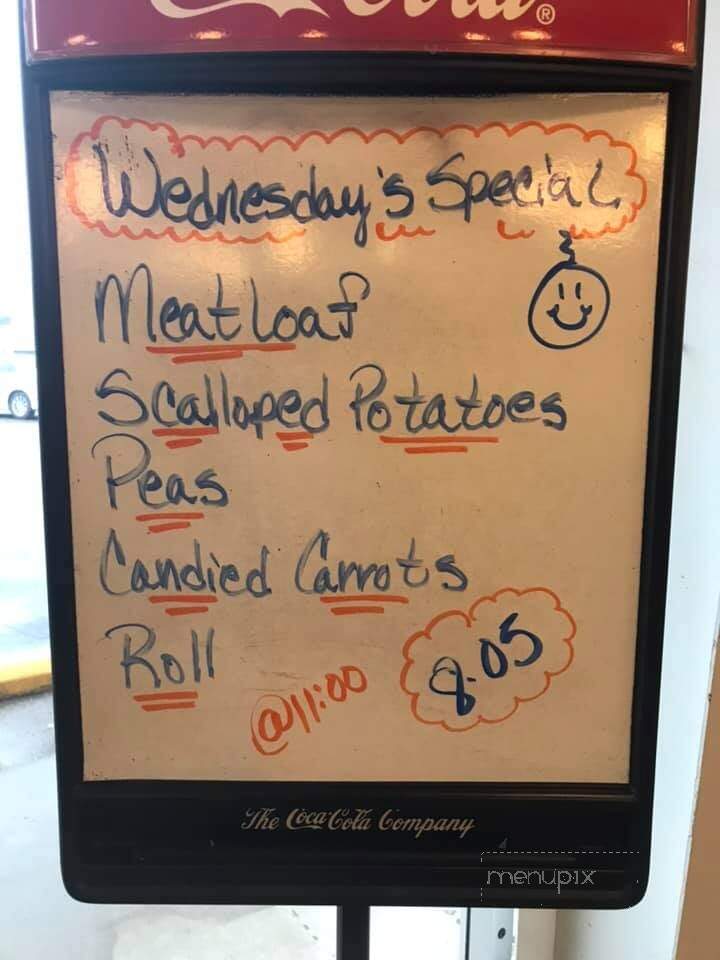 Wednesday's Special
Meatloaf
Scalloped Potatoes
Peas
Candied Carrots
Roll
@11:00
8.05
The Coca-Cola Company
menupix